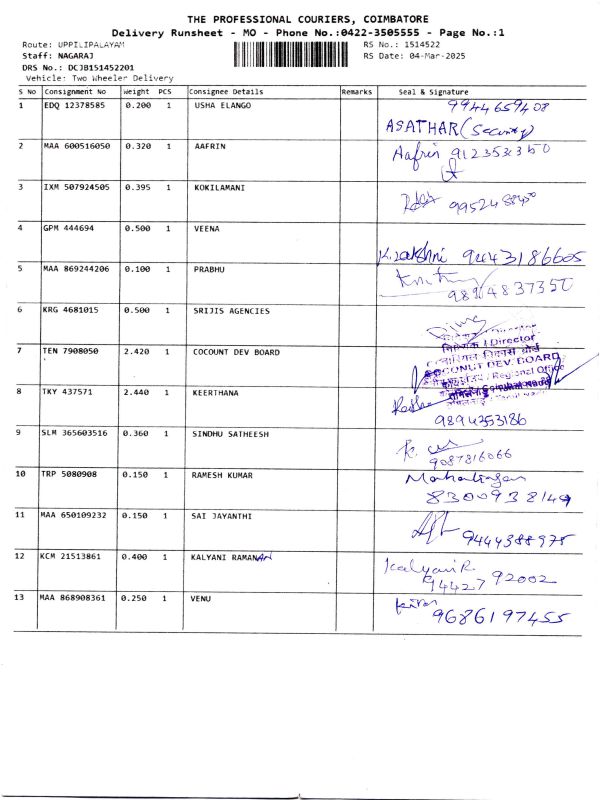 THE PROFESSIONAL COURIERS, COIMBATORE
Delivery Runsheet - MO - Phone No.:0422-3505555 - Page No.:1
Route: UPPILIPALAYAM RS No.: 1514522
Staff: NAGARAJ RS Date: 04-Mar-2025
DRS No.: DCJB151452201
Vehicle: Two Wheeler Delivery
S No Consignment No Weight PCS Consignee Details Remarks Seal & Signature
1 EDQ 12378585 0.200 1 USHA ELANGO 9944659408
ASATHAR (Security)
2 MAA 600516050 0.320 1 AAFRIN Aafrin
3 IXM 507924505 0.395 1 KOKILAMANI
4 GPM 444694 0.500 1 VEENA 9443186605
5 MAA 869244206 0.100 1 PRABHU
9894837350
6 KRG 4681015 0.500 1 SRIJIS AGENCIES
निदेशक / Director
7 TEN 7908050 2.420 1 COCOUNT DEV BOARD
COCONUT DEV. BOARD
Regional Office
8 TKY 437571 2.440 1 KEERTHANA
9894353186
9 SLM 365603516 0.360 1 SINDHU SATHEESH
9087816066
10 TRP 5080908 0.150 1 RAMESH KUMAR Mahalingam
8300938149
11 MAA 650109232 0.150 1 SAI JAYANTHI 9444388975
12 KCM 21513861 0.400 1 KALYANI RAMANAN Kalyani R.
94427 92002
13 MAA 868908361 0.250 1 VENU
9686197455